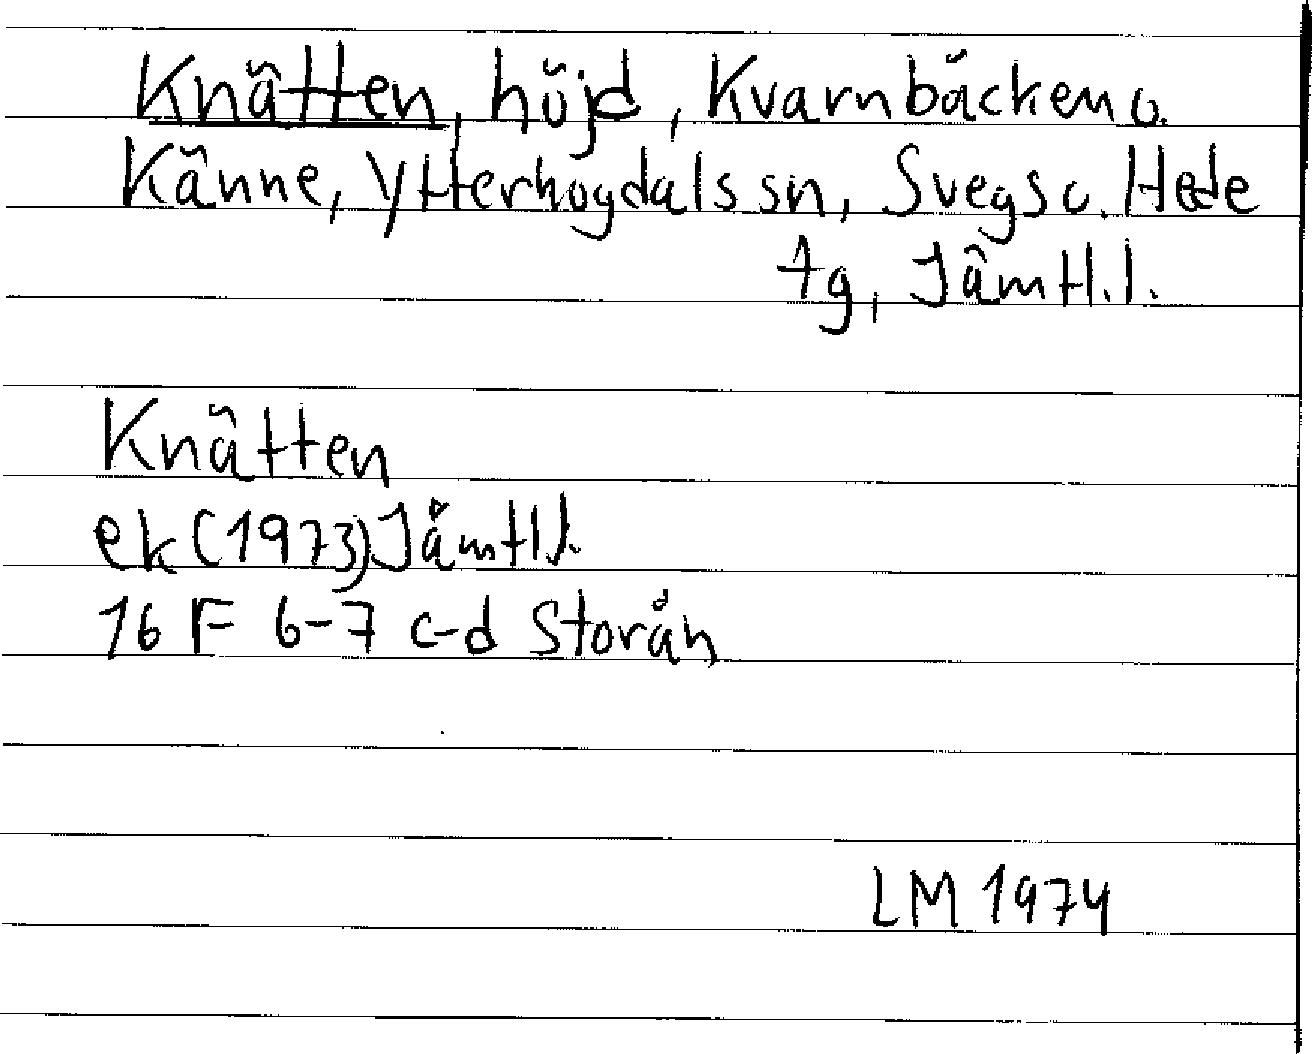 Knätten, höjd, Kvarnbäcken o.
Känne, Ytterhogdals sn, Svegs o. Hede
tg, Jämtl.l.
Knätten
ek (1973) Jämtl.l.
16 F 6-7 c-d Storån
LM 1974